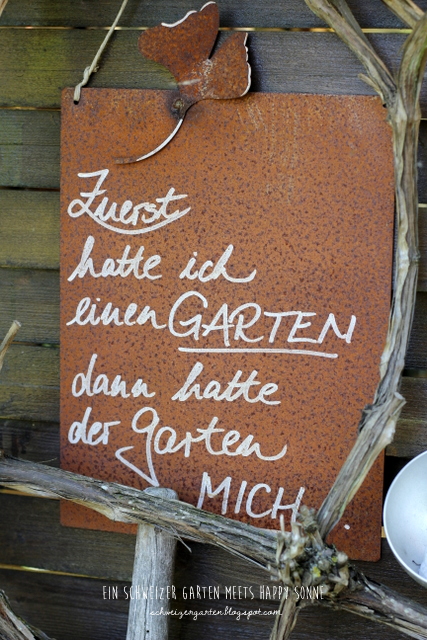 Zuerst
hatte ich
einen GARTEN
dann hatte
der garten
MICH.
EIN SCHWEIZER GARTEN MEETS HAPPY SONNE
schweizergarten.blogspot.com